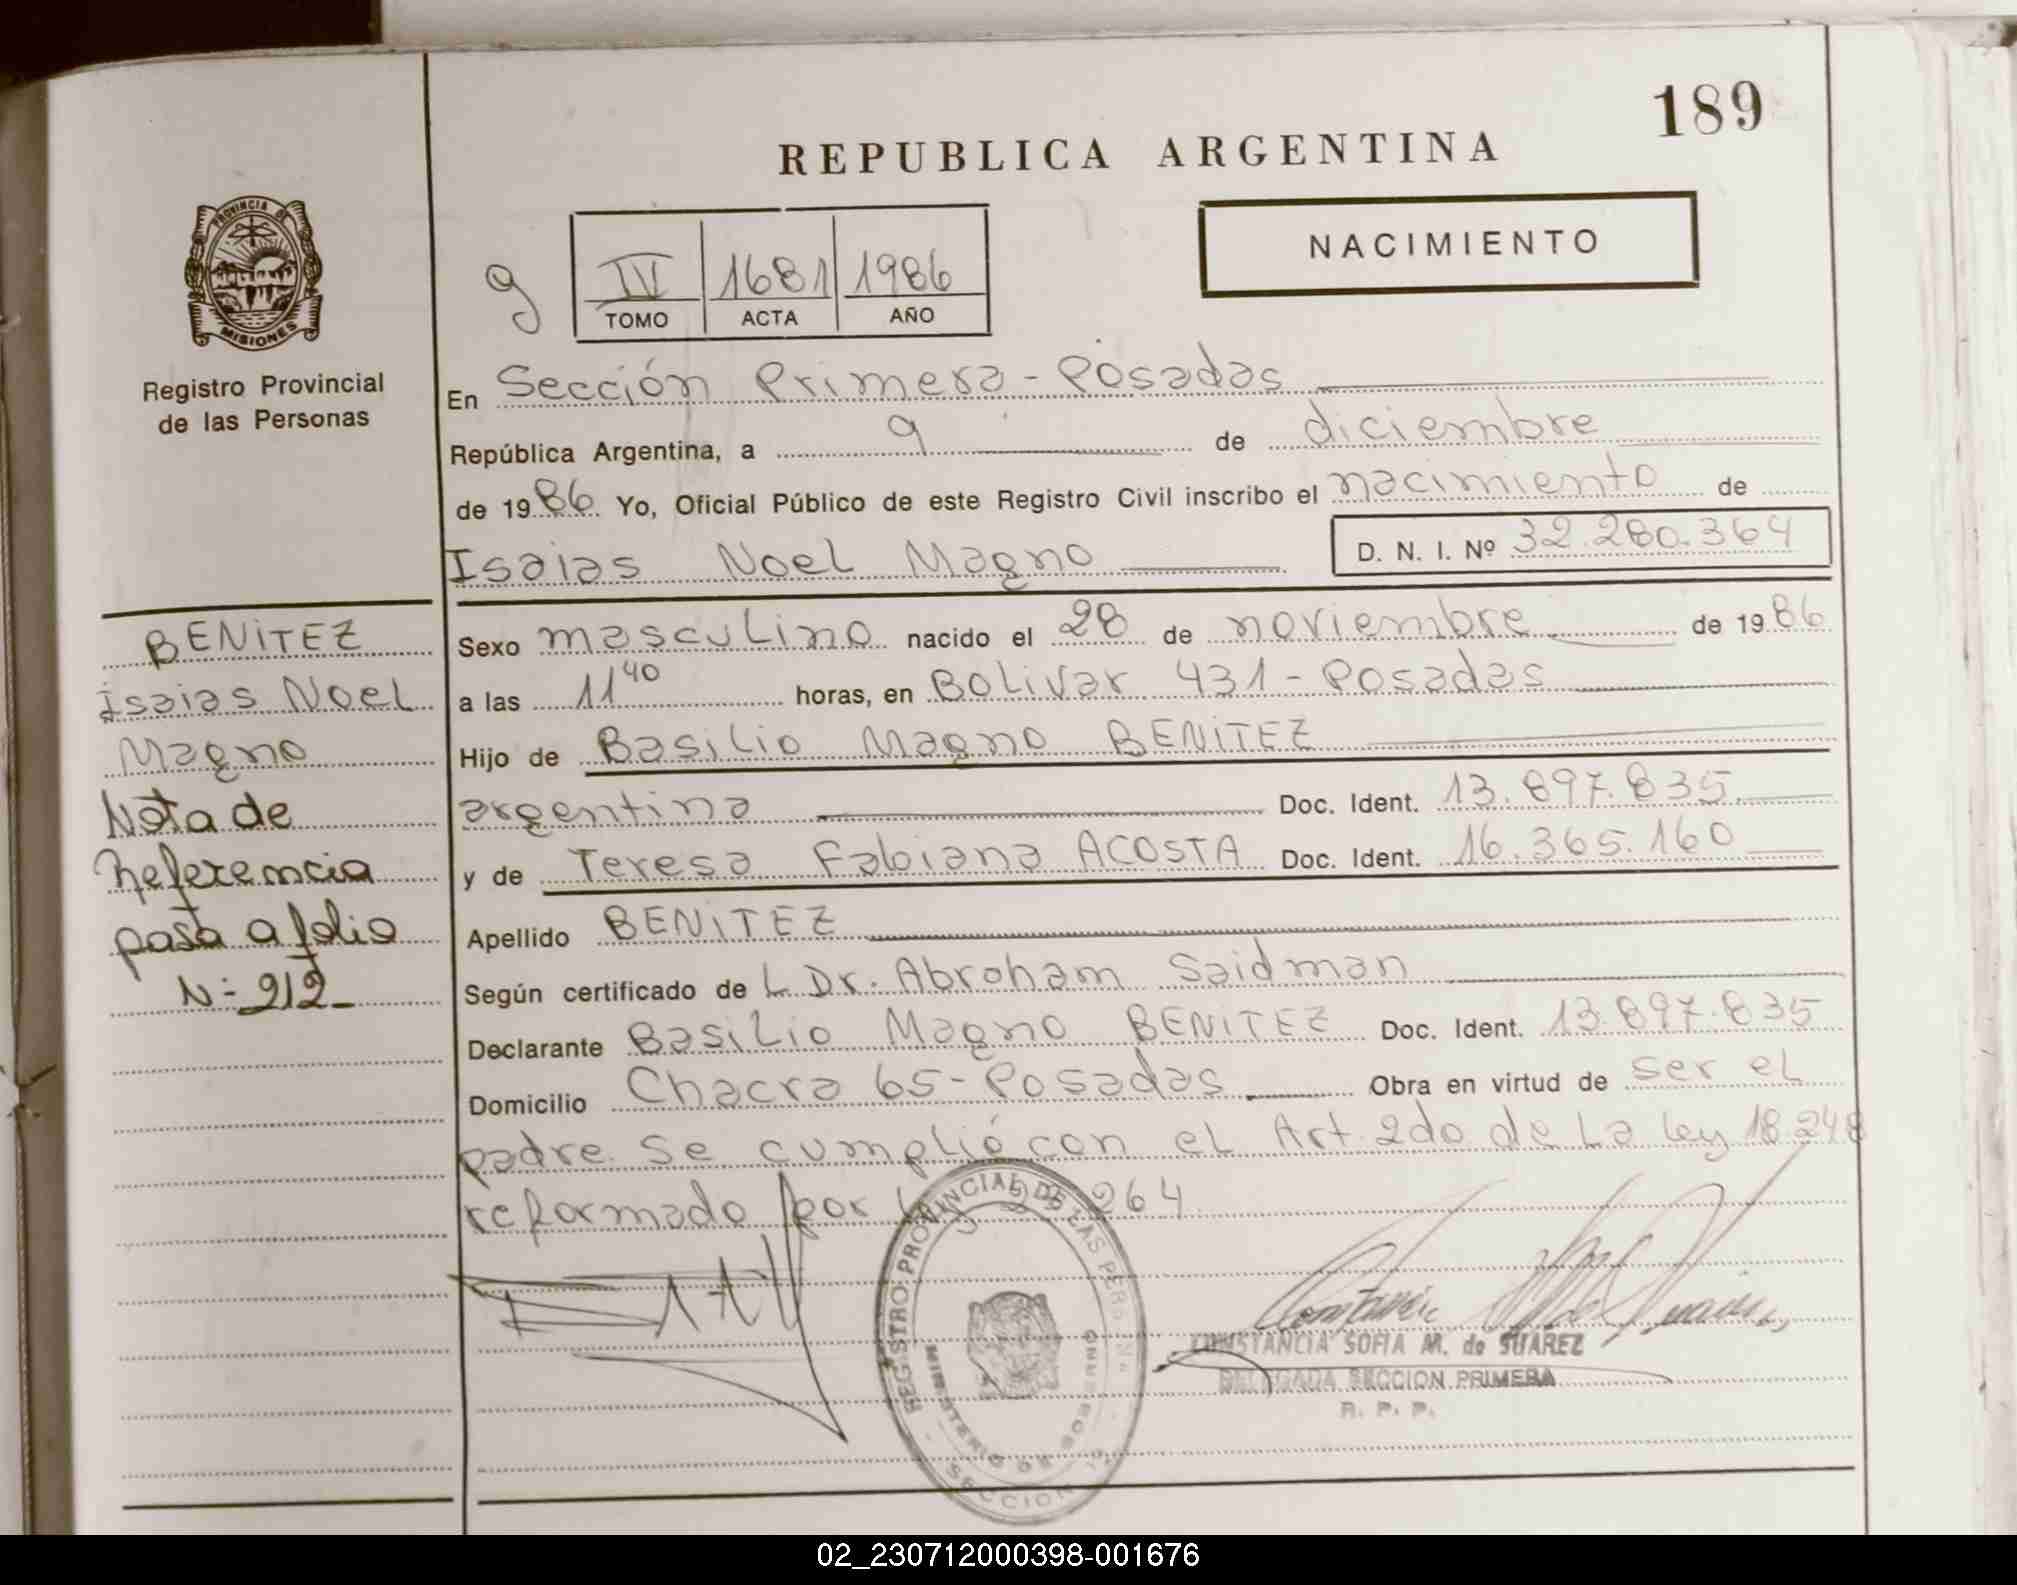 189
REPUBLICA ARGENTINA
NACIMIENTO
PROVINCIA DE
MISIONES
Registro Provincial
de las Personas
9
IV 1681 1986
TOMO ACTA AÑO
En Sección Primera - Posadas
República Argentina, a 9 de diciembre
de 1986 Yo, Oficial Público de este Registro Civil inscribo el nacimiento de
Isaias Noel Magno D. N. I. Nº 32.280.364
BENITEZ
Isaias Noel
Magno
Nota de
Referencia
pasa a folio
N- 212
Sexo masculino nacido el 28 de noviembre de 1986
a las 11 40 horas, en Bolivar 431 - Posadas
Hijo de Basilio Magno BENITEZ
argentina Doc. Ident. 13.897.835
y de Teresa Fabiana ACOSTA Doc. Ident. 16.365.160
Apellido BENITEZ
Según certificado de L Dr. Abraham Saidman
Declarante Basilio Magno BENITEZ Doc. Ident. 13.897.835
Domicilio Chacra 65 - Posadas Obra en virtud de ser el
padre. Se cumplió con el Art. 2do de La Ley 18.248
reformado por 264
REGISTRO PROVINCIAL DE LAS PERSON
MINISTERIO DE GOBIERNO
SECCION
CONSTANCIA SOFIA M. de SUAREZ
DELEGADA SECCION PRIMERA
R. P. P.
02_230712000398-001676